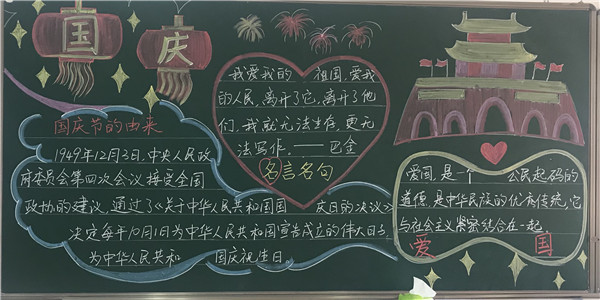 国庆
国庆节的由来
1949年12月3日,中央人民政
府委员会第四次会议接受全国
政协的建议,通过了《关于中华人民共和国国 庆日的决议》
决定每年10月1日为中华人民共和国宣告成立的伟大日子
为中华人民共和 国国庆祝生日。
我爱我的 祖国,爱我
的人民,离开了它,离开了他
们,我就无法生存,更无
法写作。——巴金
名言名句
爱国,是一个 公民起码的
道德,是中华民族的优良传统,它
与社会主义紧密结合在一起
爱 国